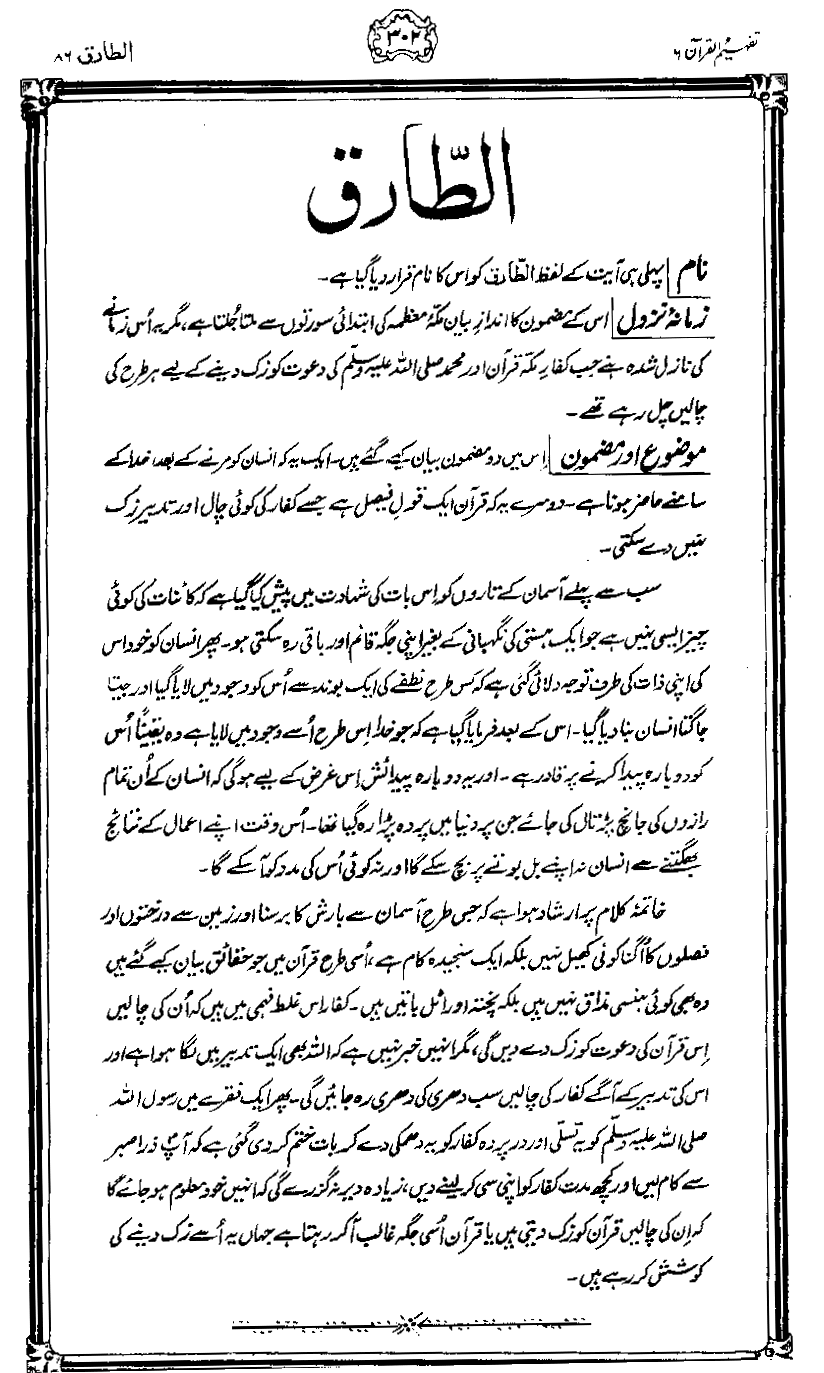 تفہیم القرآن ۶
۳۰۲
الطارق ۸۶
الطّارق
نام پہلی ہی آیت کے لفظ الطّارق کو اس کا نام قرار دیا گیا ہے۔
زمانۂ نزول اس کے مضمون کا اندازِ بیان مکّۂ معظمہ کی ابتدائی سورتوں سے ملتا جُلتا ہے، مگر یہ اُس زمانے
کی نازل شدہ ہے جب کفارِ مکّہ قرآن اور محمد صلی اللہ علیہ وسلّم کی دعوت کو زک دینے کے لیے ہر طرح کی
چالیں چل رہے تھے۔
موضوع اور مضمون اِس میں دو مضمون بیان کیے گئے ہیں۔ ایک یہ کہ انسان کو مرنے کے بعد خدا کے
سامنے حاضر ہونا ہے۔ دوسرے یہ کہ قرآن ایک قولِ فیصل ہے جسے کفار کی کوئی چال اور تدبیر زک
نہیں دے سکتی۔
سب سے پہلے آسمان کے تاروں کو اِس بات کی شہادت میں پیش کیا گیا ہے کہ کائنات کی کوئی
چیز ایسی نہیں ہے جو ایک ہستی کی نگہبانی کے بغیر اپنی جگہ قائم اور باقی رہ سکتی ہو۔ پھر انسان کو خود اس
کی اپنی ذات کی طرف توجہ دلائی گئی ہے کہ کس طرح نطفے کی ایک بوند سے اُس کو وجود میں لایا گیا اور جیتا
جاگتا انسان بنا دیا گیا۔ اس کے بعد فرمایا گیا ہے کہ جو خدا اِس طرح اُسے وجود میں لایا ہے وہ یقیناً اُس
کو دوبارہ پیدا کرنے پر قادر ہے۔ اور یہ دوبارہ پیدائش اِس غرض کے لیے ہو گی کہ انسان کے اُن تمام
رازوں کی جانچ پڑتال کی جائے جن پر دنیا میں پردہ پڑا رہ گیا تھا۔ اُس وقت اپنے اعمال کے نتائج
بھگتنے سے انسان نہ اپنے بل بوتے پر بچ سکے گا اور نہ کوئی اُس کی مدد کو آ سکے گا۔
خاتمۂ کلام پر ارشاد ہوا ہے کہ جس طرح آسمان سے بارش کا برسنا اور زمین سے درختوں اور
فصلوں کا اُگنا کوئی کھیل نہیں بلکہ ایک سنجیدہ کام ہے، اُسی طرح قرآن میں جو حقائق بیان کیے گئے ہیں
وہ بھی کوئی ہنسی مذاق نہیں ہیں بلکہ پختہ اور اٹل باتیں ہیں۔ کفار اس غلط فہمی میں ہیں کہ اُن کی چالیں
اِس قرآن کی دعوت کو زک دے دیں گی، مگر انہیں خبر نہیں ہے کہ اللہ بھی ایک تدبیر میں لگا ہوا ہے اور
اس کی تدبیر کے آگے کفار کی چالیں سب دھری کی دھری رہ جائیں گی۔ پھر ایک فقرے میں رسول اللہ
صلی اللہ علیہ وسلّم کو یہ تسلّی اور درپردہ کفار کو یہ دھمکی دے کر بات ختم کر دی گئی ہے کہ آپؐ ذرا صبر
سے کام لیں اور کچھ مدت کفار کو اپنی سی کر لینے دیں، زیادہ دیر نہ گزرے گی کہ انہیں خود معلوم ہو جائے گا
کہ اِن کی چالیں قرآن کو زک دیتی ہیں یا قرآن اُسی جگہ غالب آ کر رہتا ہے جہاں یہ اُسے زک دینے کی
کوشش کر رہے ہیں۔